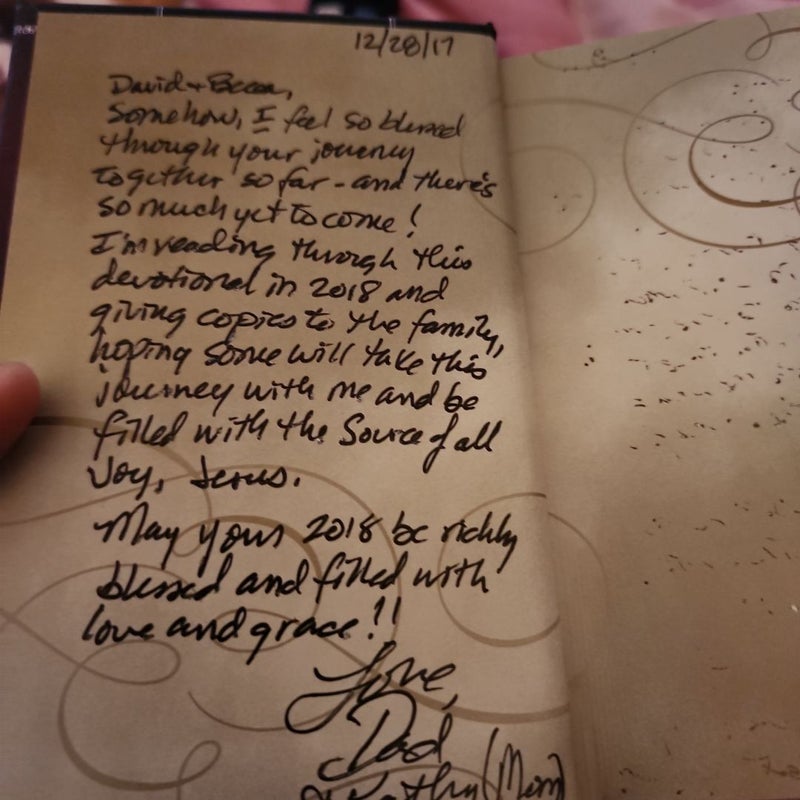 12/28/17
David + Becca,
Somehow, I feel so blessed
through your journey
together so far - and there's
so much yet to come!
I'm reading through this
devotional in 2018 and
giving copies to the family,
hoping some will take this
journey with me and be
filled with the Source of all
Joy, Jesus.
May your 2018 be richly
blessed and filled with
love and grace!!
Love,
Dad
& Kathy (Mom)